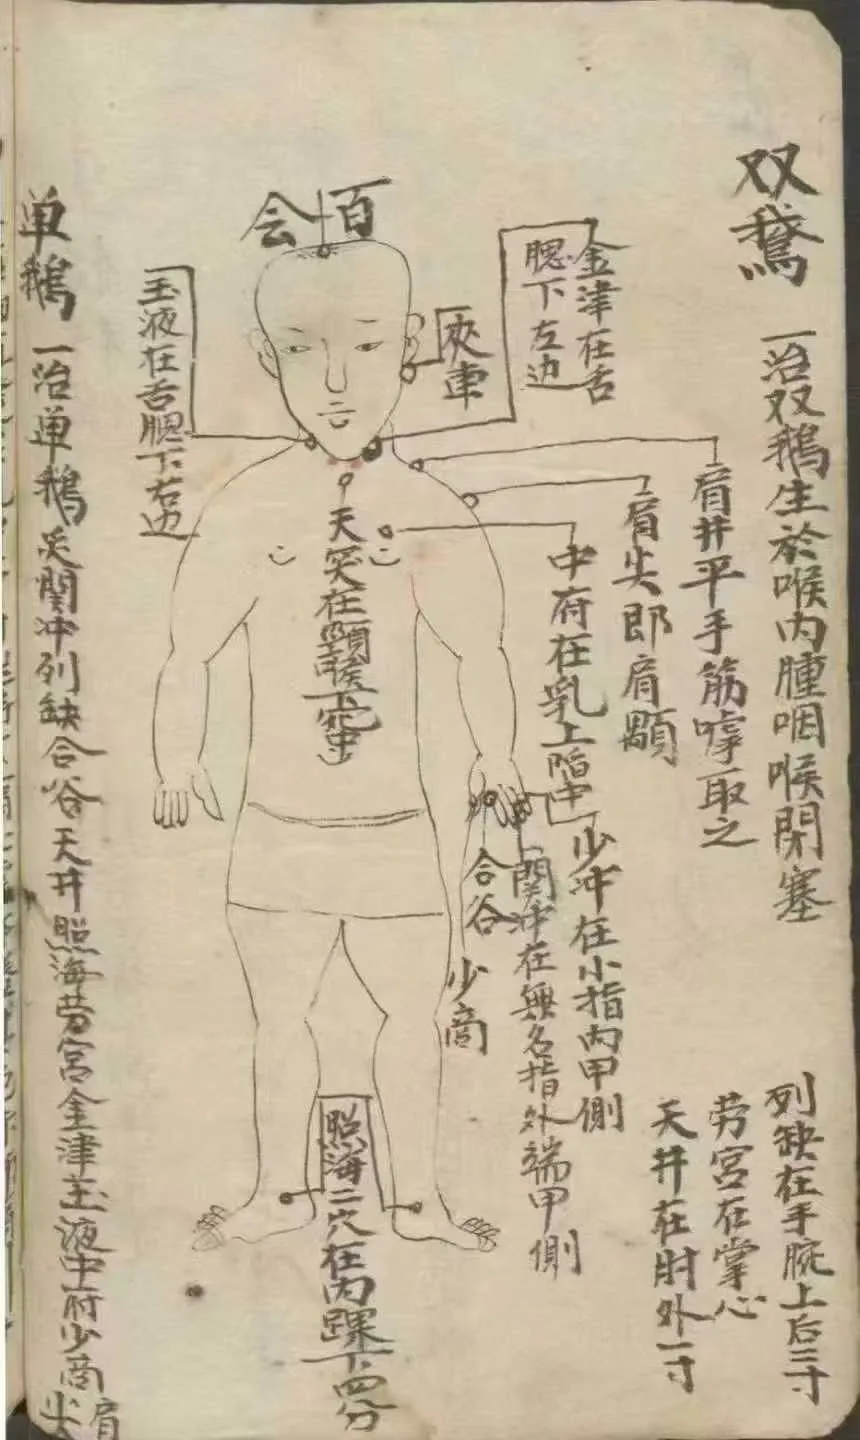 双鵝
一治双鵝生於喉内腫咽喉閉塞
列缺在手腕上后二寸
劳宮在掌心
天井在肘外一寸
肩井平手筋嘑取之
肩尖即肩顒
中府在乳上陷中
少冲在小指内甲側
関冲在無名指外端甲側
合谷
少商
金津在舌
腮下左边
夾車
百会
天突在頸喉下宛中
照海二穴在内踝下四分
玉液在舌腮下右边
单鵝
一治单鵝 関冲列缺合谷天井照海劳宮金津玉液中府少商
肩尖